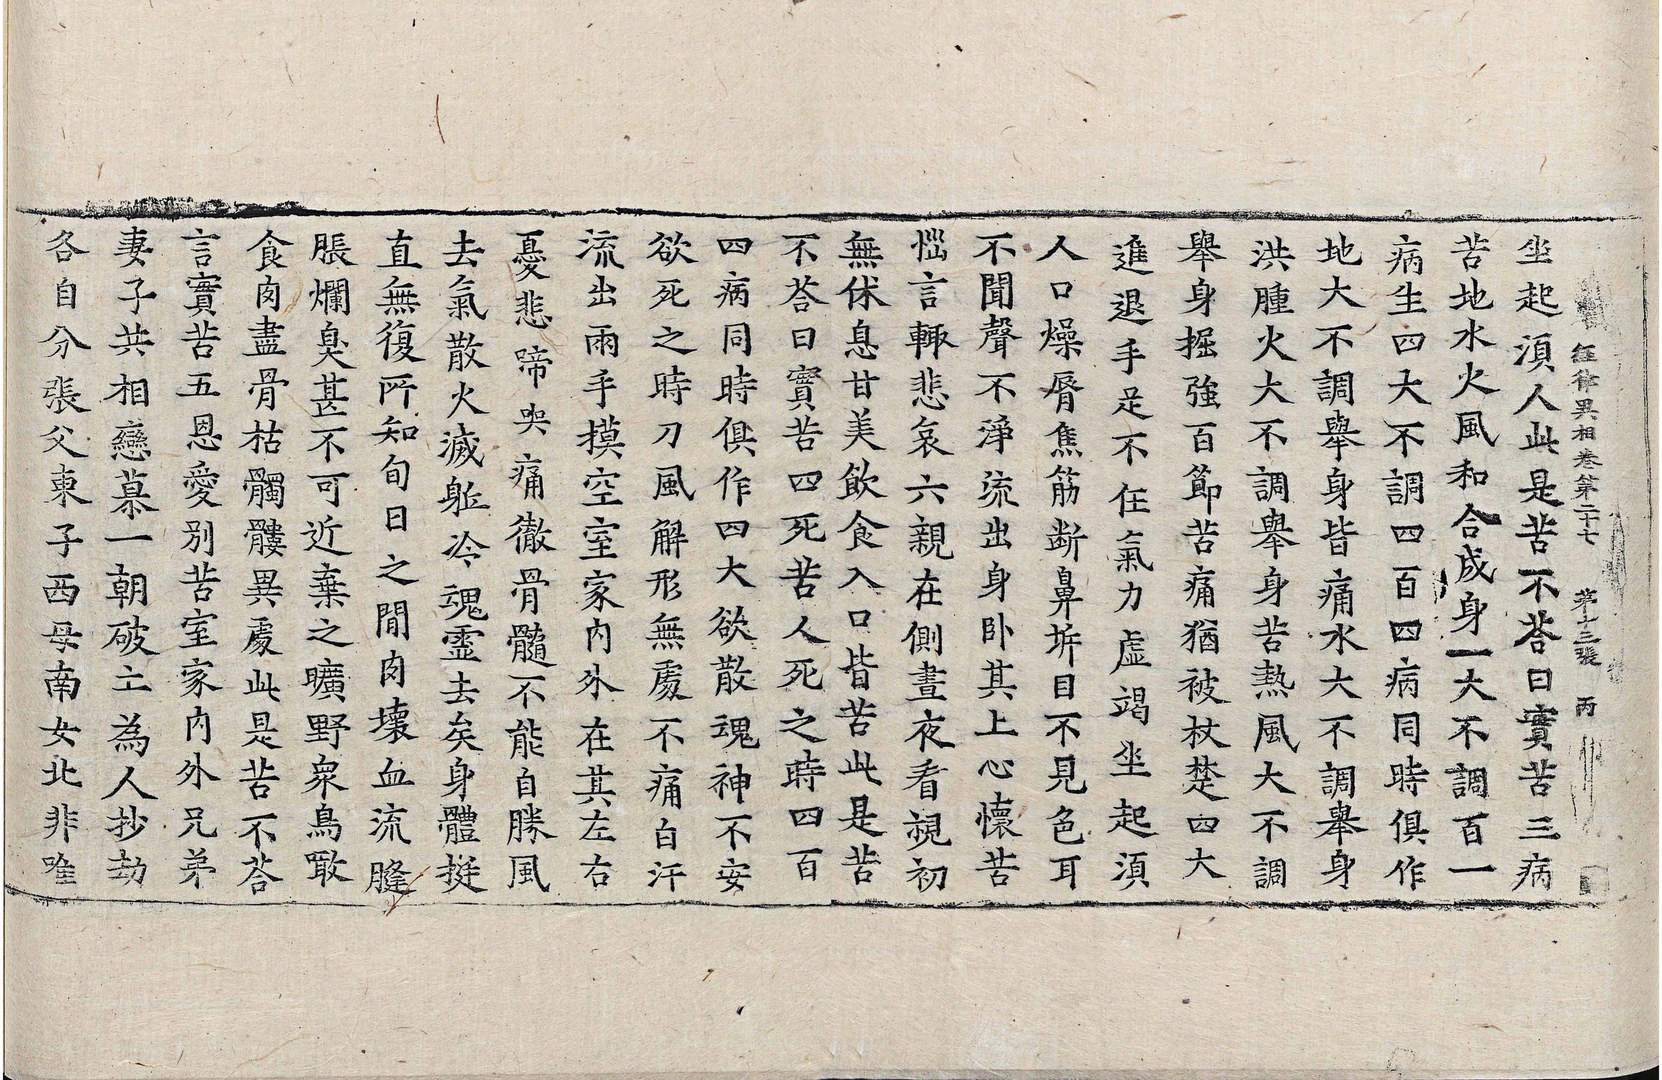 經律異相卷第二十七 第十三張 丙
坐起須人此是苦不荅曰實苦三病
苦地水火風和合成身一大不調百一
病生四大不調四百四病同時俱作
地大不調舉身皆痛水大不調舉身
洪腫火大不調舉身苦熱風大不調
舉身掘強百節苦痛猶被杖楚四大
進退手足不任氣力虛竭坐起須
人口燥脣焦筋断鼻坼目不見色耳
不聞聲不淨流出身卧其上心懷苦
惱言輙悲哀六親在側晝夜看視初
無休息甘美飲食入口皆苦此是苦
不荅曰實苦四死苦人死之時四百
四病同時俱作四大欲散魂神不安
欲死之時刀風解形無處不痛白汗
流出兩手摸空室家内外在其左右
憂悲啼哭痛徹骨髓不能自勝風
去氣散火滅躯冷魂靈去矣身體挺
直無復所知旬日之間肉壞血流膖
脹爛臭甚不可近棄之曠野衆鳥噉
食肉盡骨枯髑髏異處此是苦不荅
言實苦五恩愛别苦室家内外兄弟
妻子共相戀慕一朝破亡為人抄劫
各自分張父東子西母南女北非唯